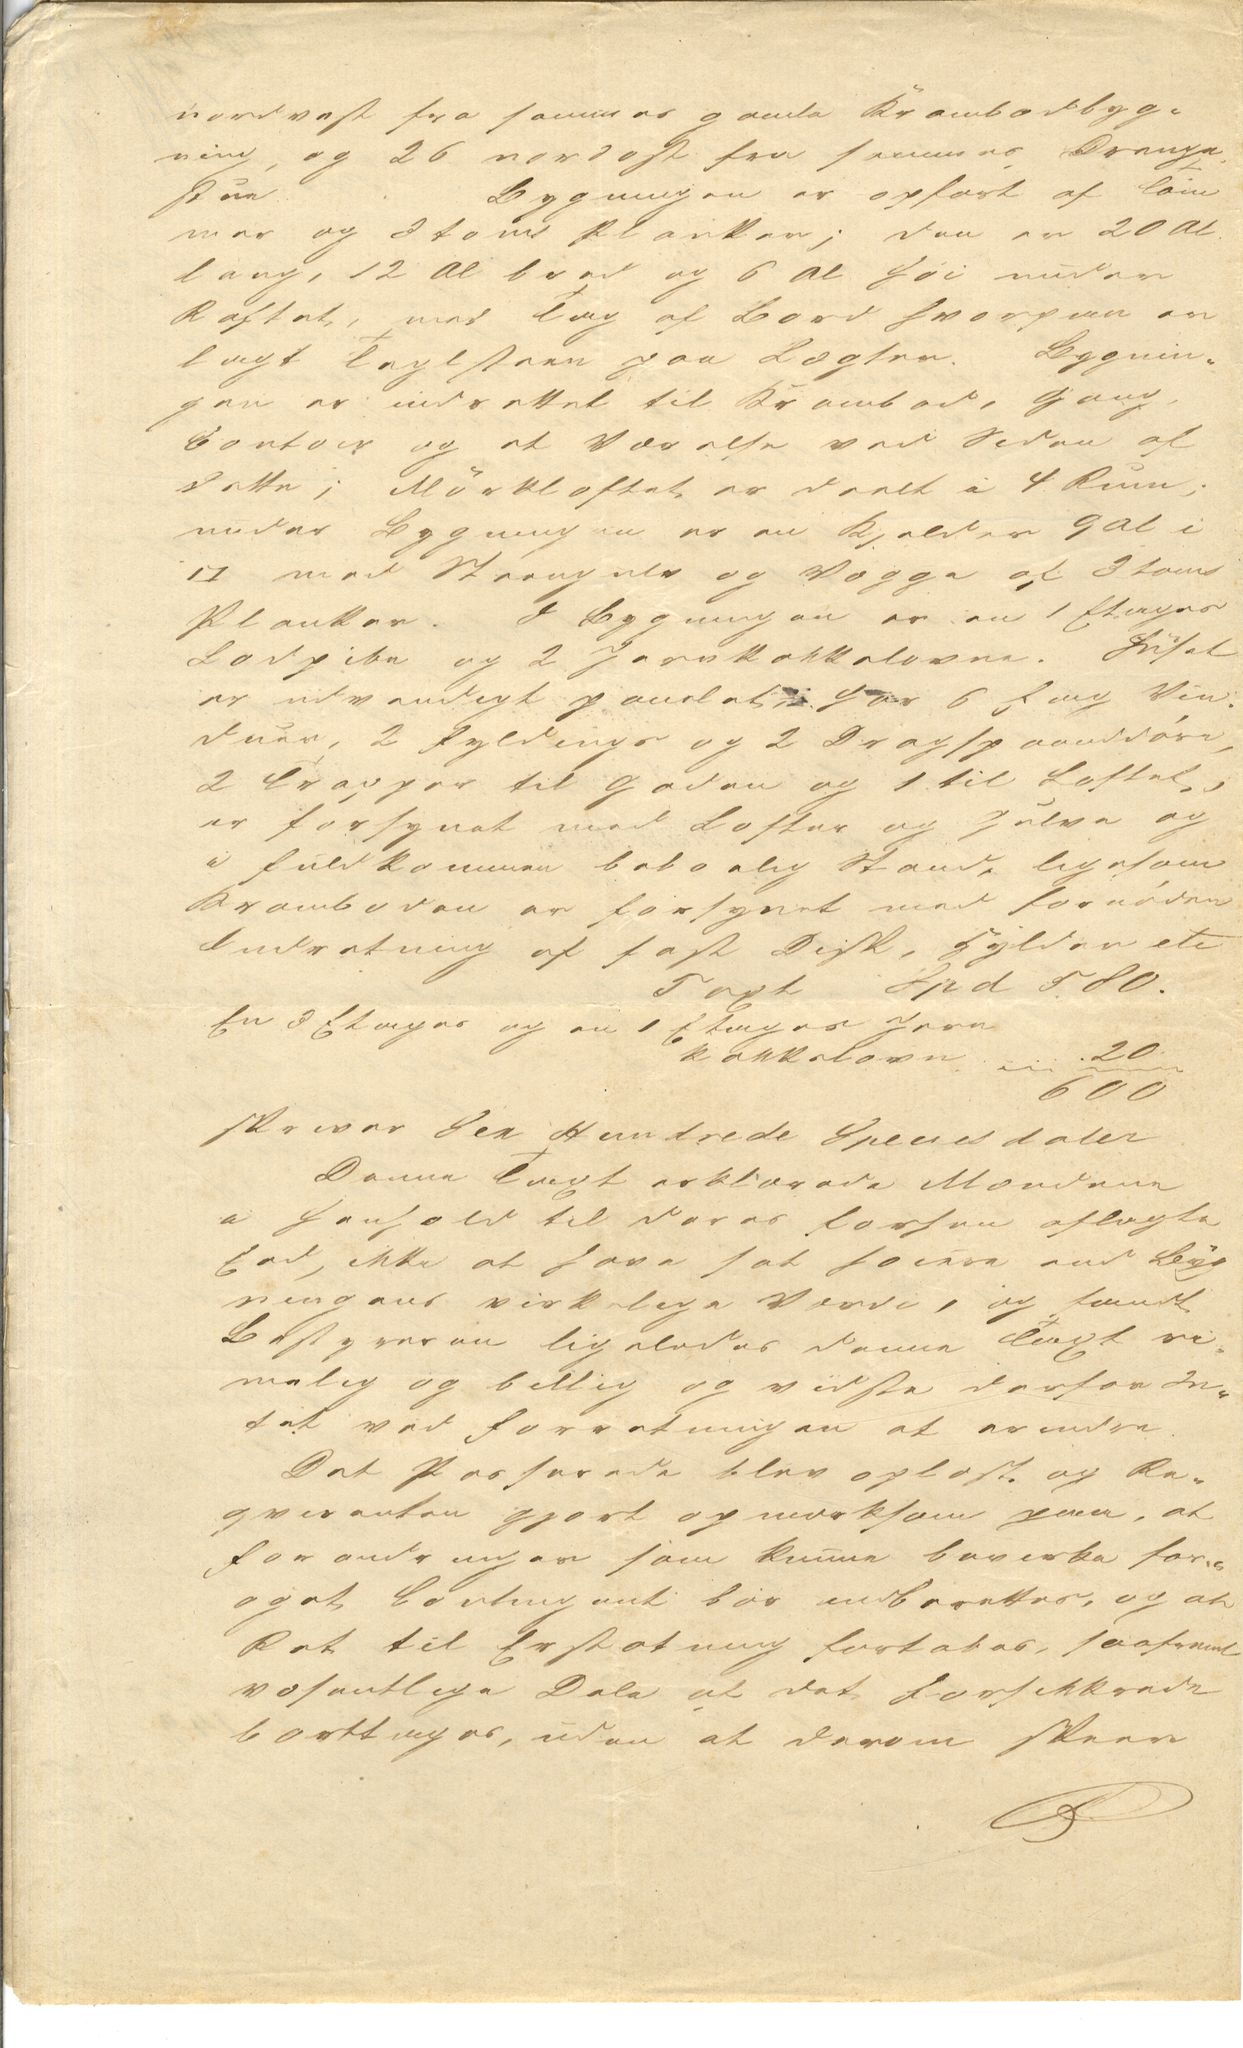 nordvest fra sammes gamle Krambodbyg-
ning, og 26 nordost fra sammes Drenge
stue. Bygningen er opført af Tøm
mer og 3 toms Planker; den er 20 Al.
lang, 12 Al bred og 6 Al høi under
Raftet, med Tag af Bord hvorpaa er
lagt Teglsteen paa Lægter. Bygnin-
gen er indrettet til Krambod, Gang,
Contoir og et Værelse ved Siden af
dette; Mørkloftet er deelt i 4 Rum;
under Bygningen er en Kjelder 9 Al i
□ med Steengulv og Vægge af 3 toms
Planker. I Bygningen er en 1 Etages
Lodpibe og 2 Jernkakkelovne. Huset
er udvendigt panelet, har 6 Fag Vin-
duer, 2 Fyldings og 2 Dragspaanddøre,
2 Trapper til Gaden og 1 til Loftet,
er forsynet med Lofter og Gulve og
i fuldkommen beboelig Stand, ligesom
Kramboden er forsynet med fornøden
Indretning af fast Disk, Hylder etc
Taxt Spd 580.
En 3 Etages og en 1 Etages Jern
kakkelovn — 20
600
skriver Sex Hundrede Speciesdaler
Denne Taxt erklærede Mændene
i Henhold til deres forhen aflagte
Eed, ikke at være sat høiere end Byg
ningens virkelige Værdi, og fandt
Bestyreren ligeledes denne Taxt ri-
melig og billig og vidste derfor In-
tet ved Forretningen at erindre.
Det Passerede blev oplæst og Re-
qvirenten gjort opmærksom paa, at
Forandringer som kunne bevirke for-
øget Contingent bør indberettes, og at
Ret til Erstatning fortabes, saafremt
væsentlige Dele af det Forsikkrede
borttages, uden at derom skeer